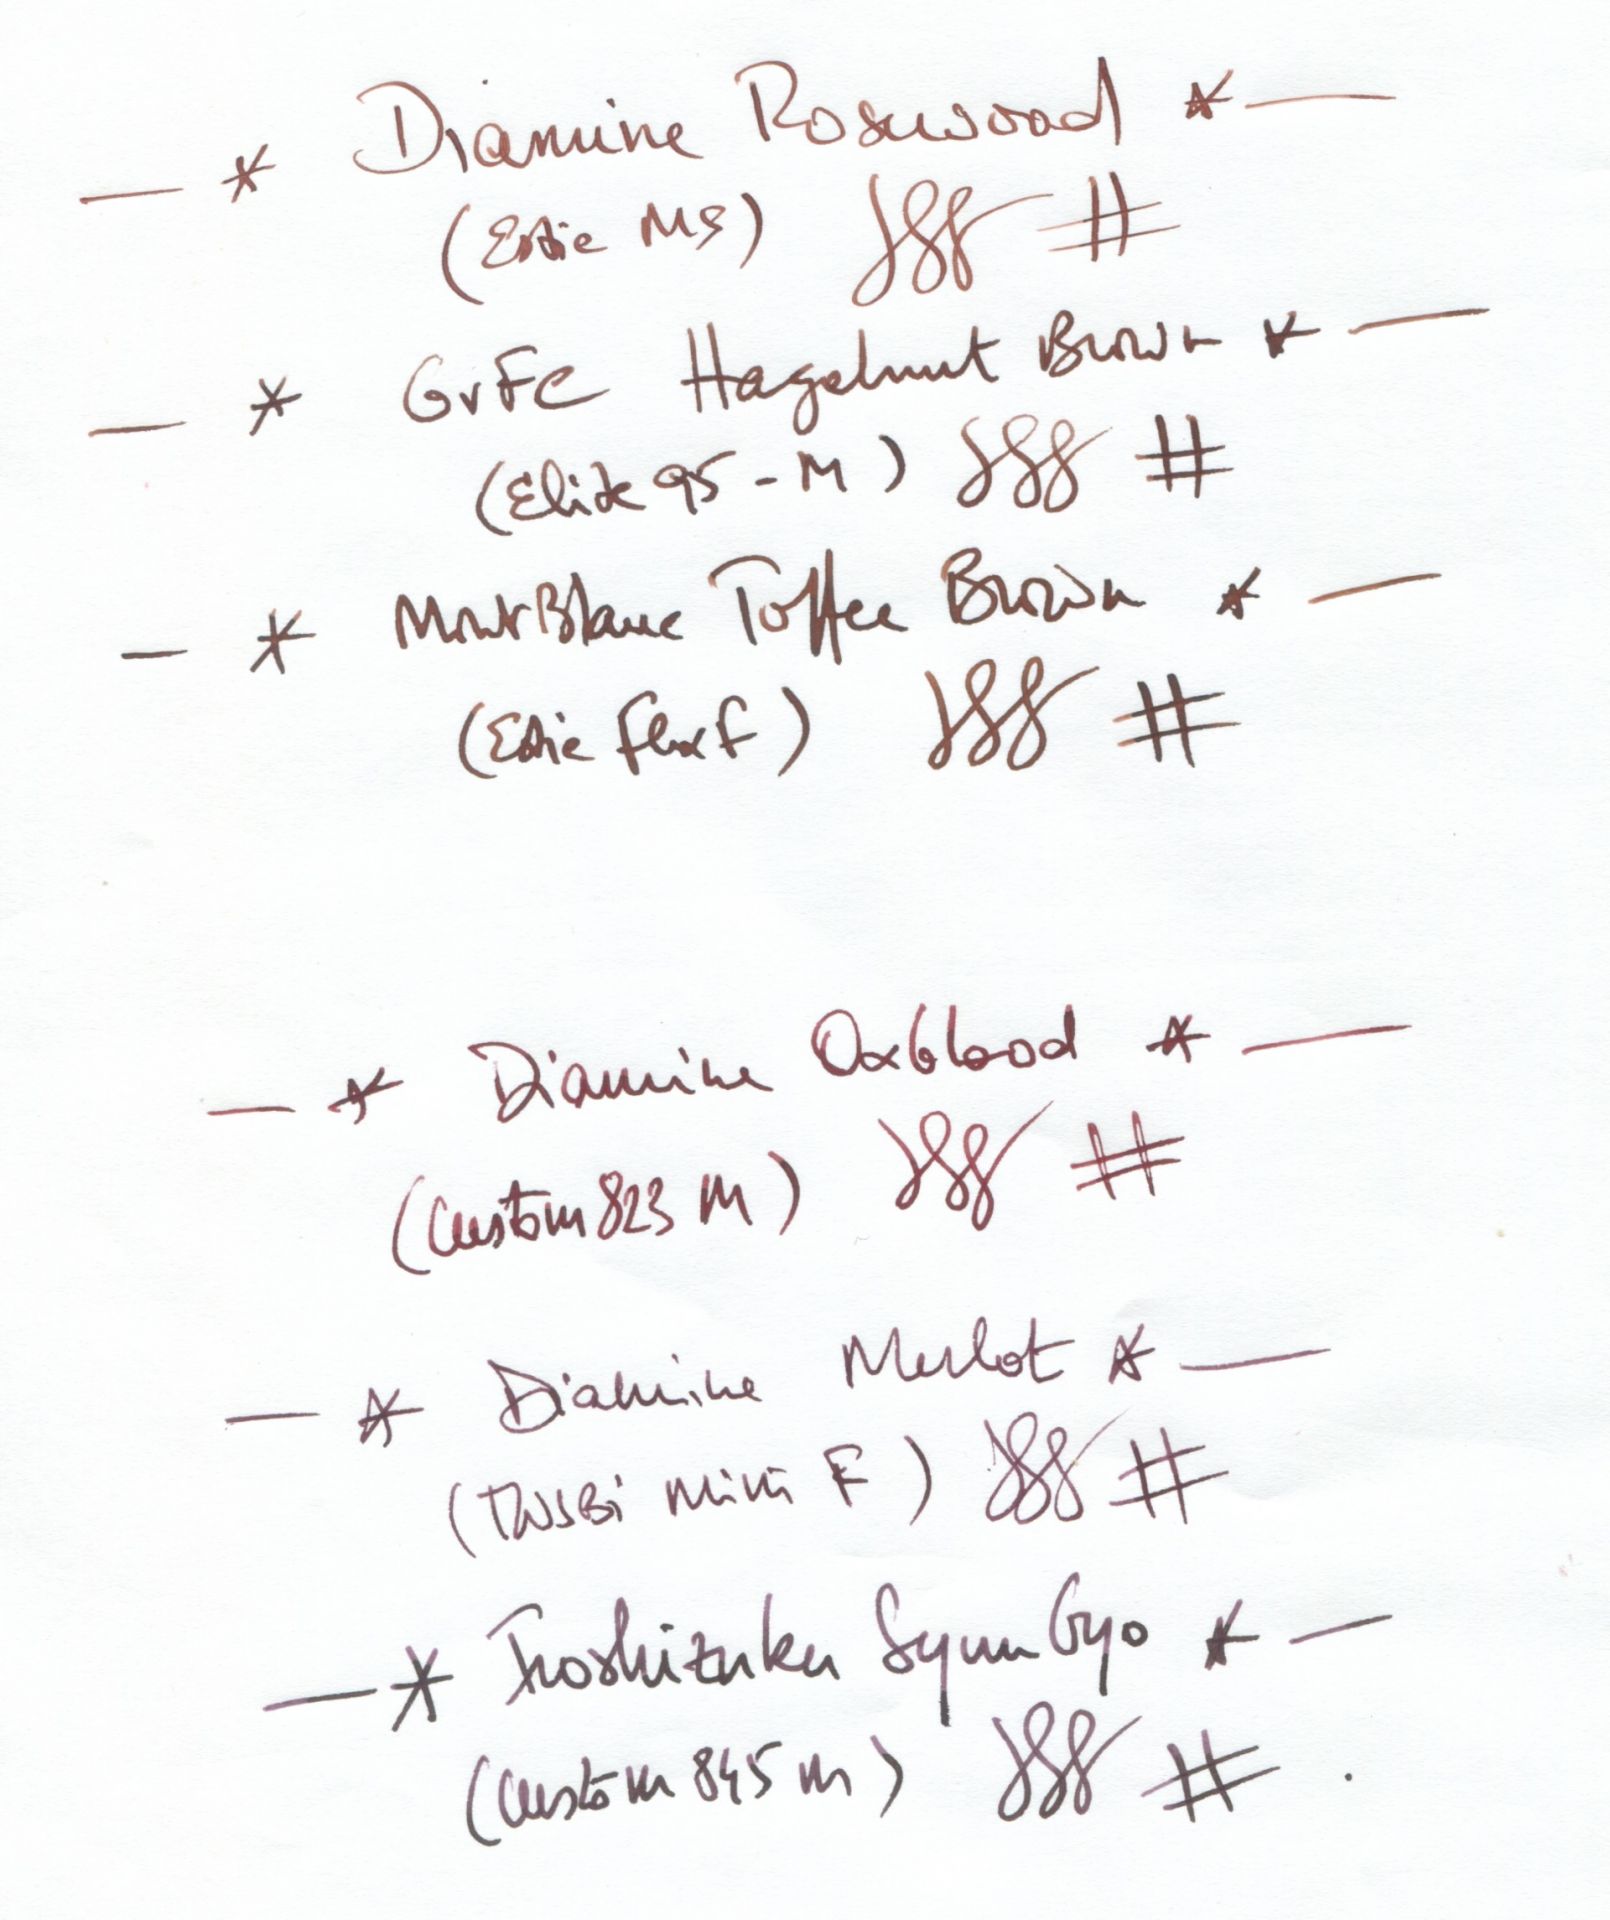 — * Diamine Rosewood * —
(Estie MS) #
— * GvFC Hazelnut Brown * —
(Elite 95 - M) #
— * MontBlanc Toffee Brown * —
(Estie flex F) #
— * Diamine Oxblood * —
(Custom 823 M) #
— * Diamine Merlot * —
(TWSBi Mini F) #
— * Iroshizuku Syun Gyo * —
(Custom 845 M) #